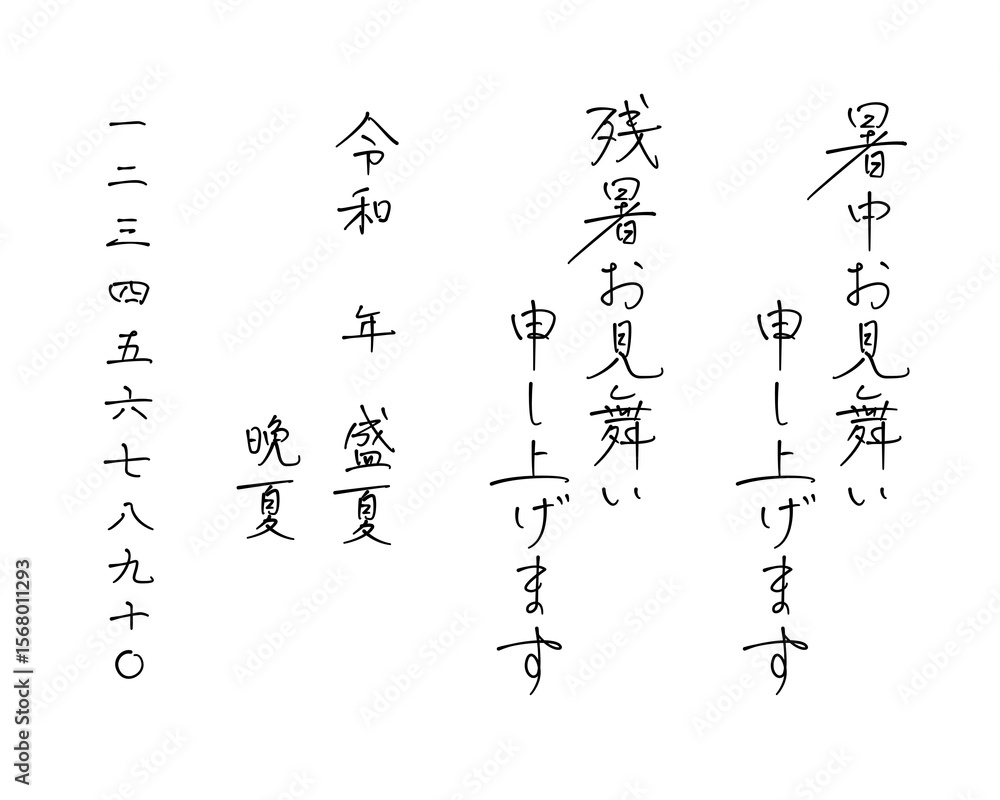 暑中お見舞い
申し上げます
残暑お見舞い
申し上げます
令和　年　盛夏
晩夏
一二三四五六七八九十〇
Adobe Stock | #1568011293
Adobe Stock